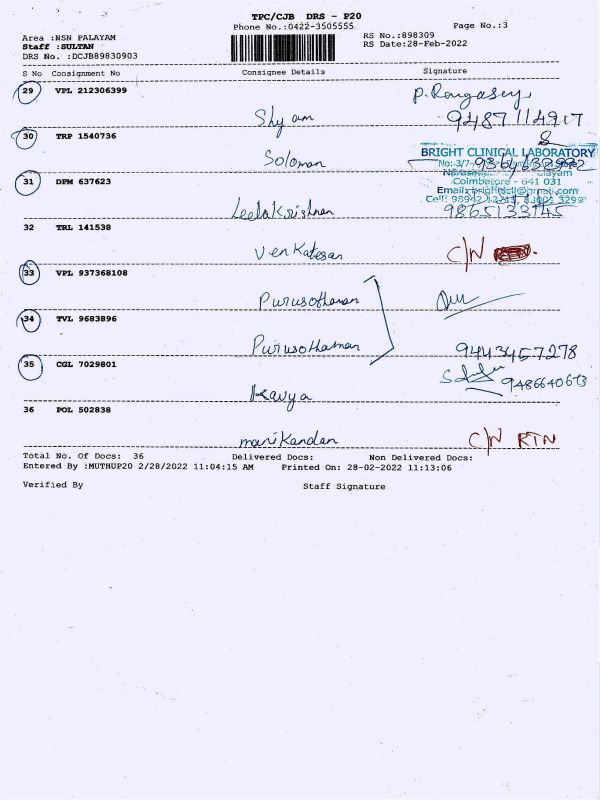 TPC/CJB DRS - P20
Phone No.:0422-3505555
Page No.:3
Area :NSN PALAYAM
RS No.:898309
Staff :SULTAN
RS Date:28-Feb-2022
DRS No. :DCJB89830903
S No Consignment No Consignee Details Signature
29 VPL 212306399
P. Rangasey
Shyam 9487114917
30 TRP 1540736
Soloman
BRIGHT CLINICAL LABORATORY
No:3/7-
31 DPM 637623
Coimbatore - 641 031
Email:
Cell: 98942
Leelakrishnan 9865133145
32 TRL 141538
Venkatesan C/N
33 VPL 937368108
Purusothaman
34 TVL 9683896
Purusothaman 9443457278
35 CGL 7029801
9486640613
Kavya
36 POL 502838
manikandan C/N RTN
Total No. Of Docs: 36 Delivered Docs: Non Delivered Docs:
Entered By :MUTHUP20 2/28/2022 11:04:15 AM Printed On: 28-02-2022 11:13:06
Verified By Staff Signature